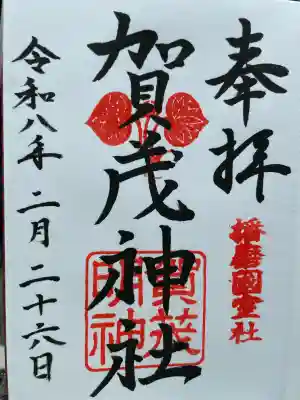 奉拝
播磨國室社
賀茂神社
賀茂明神
令和八年二月二十六日